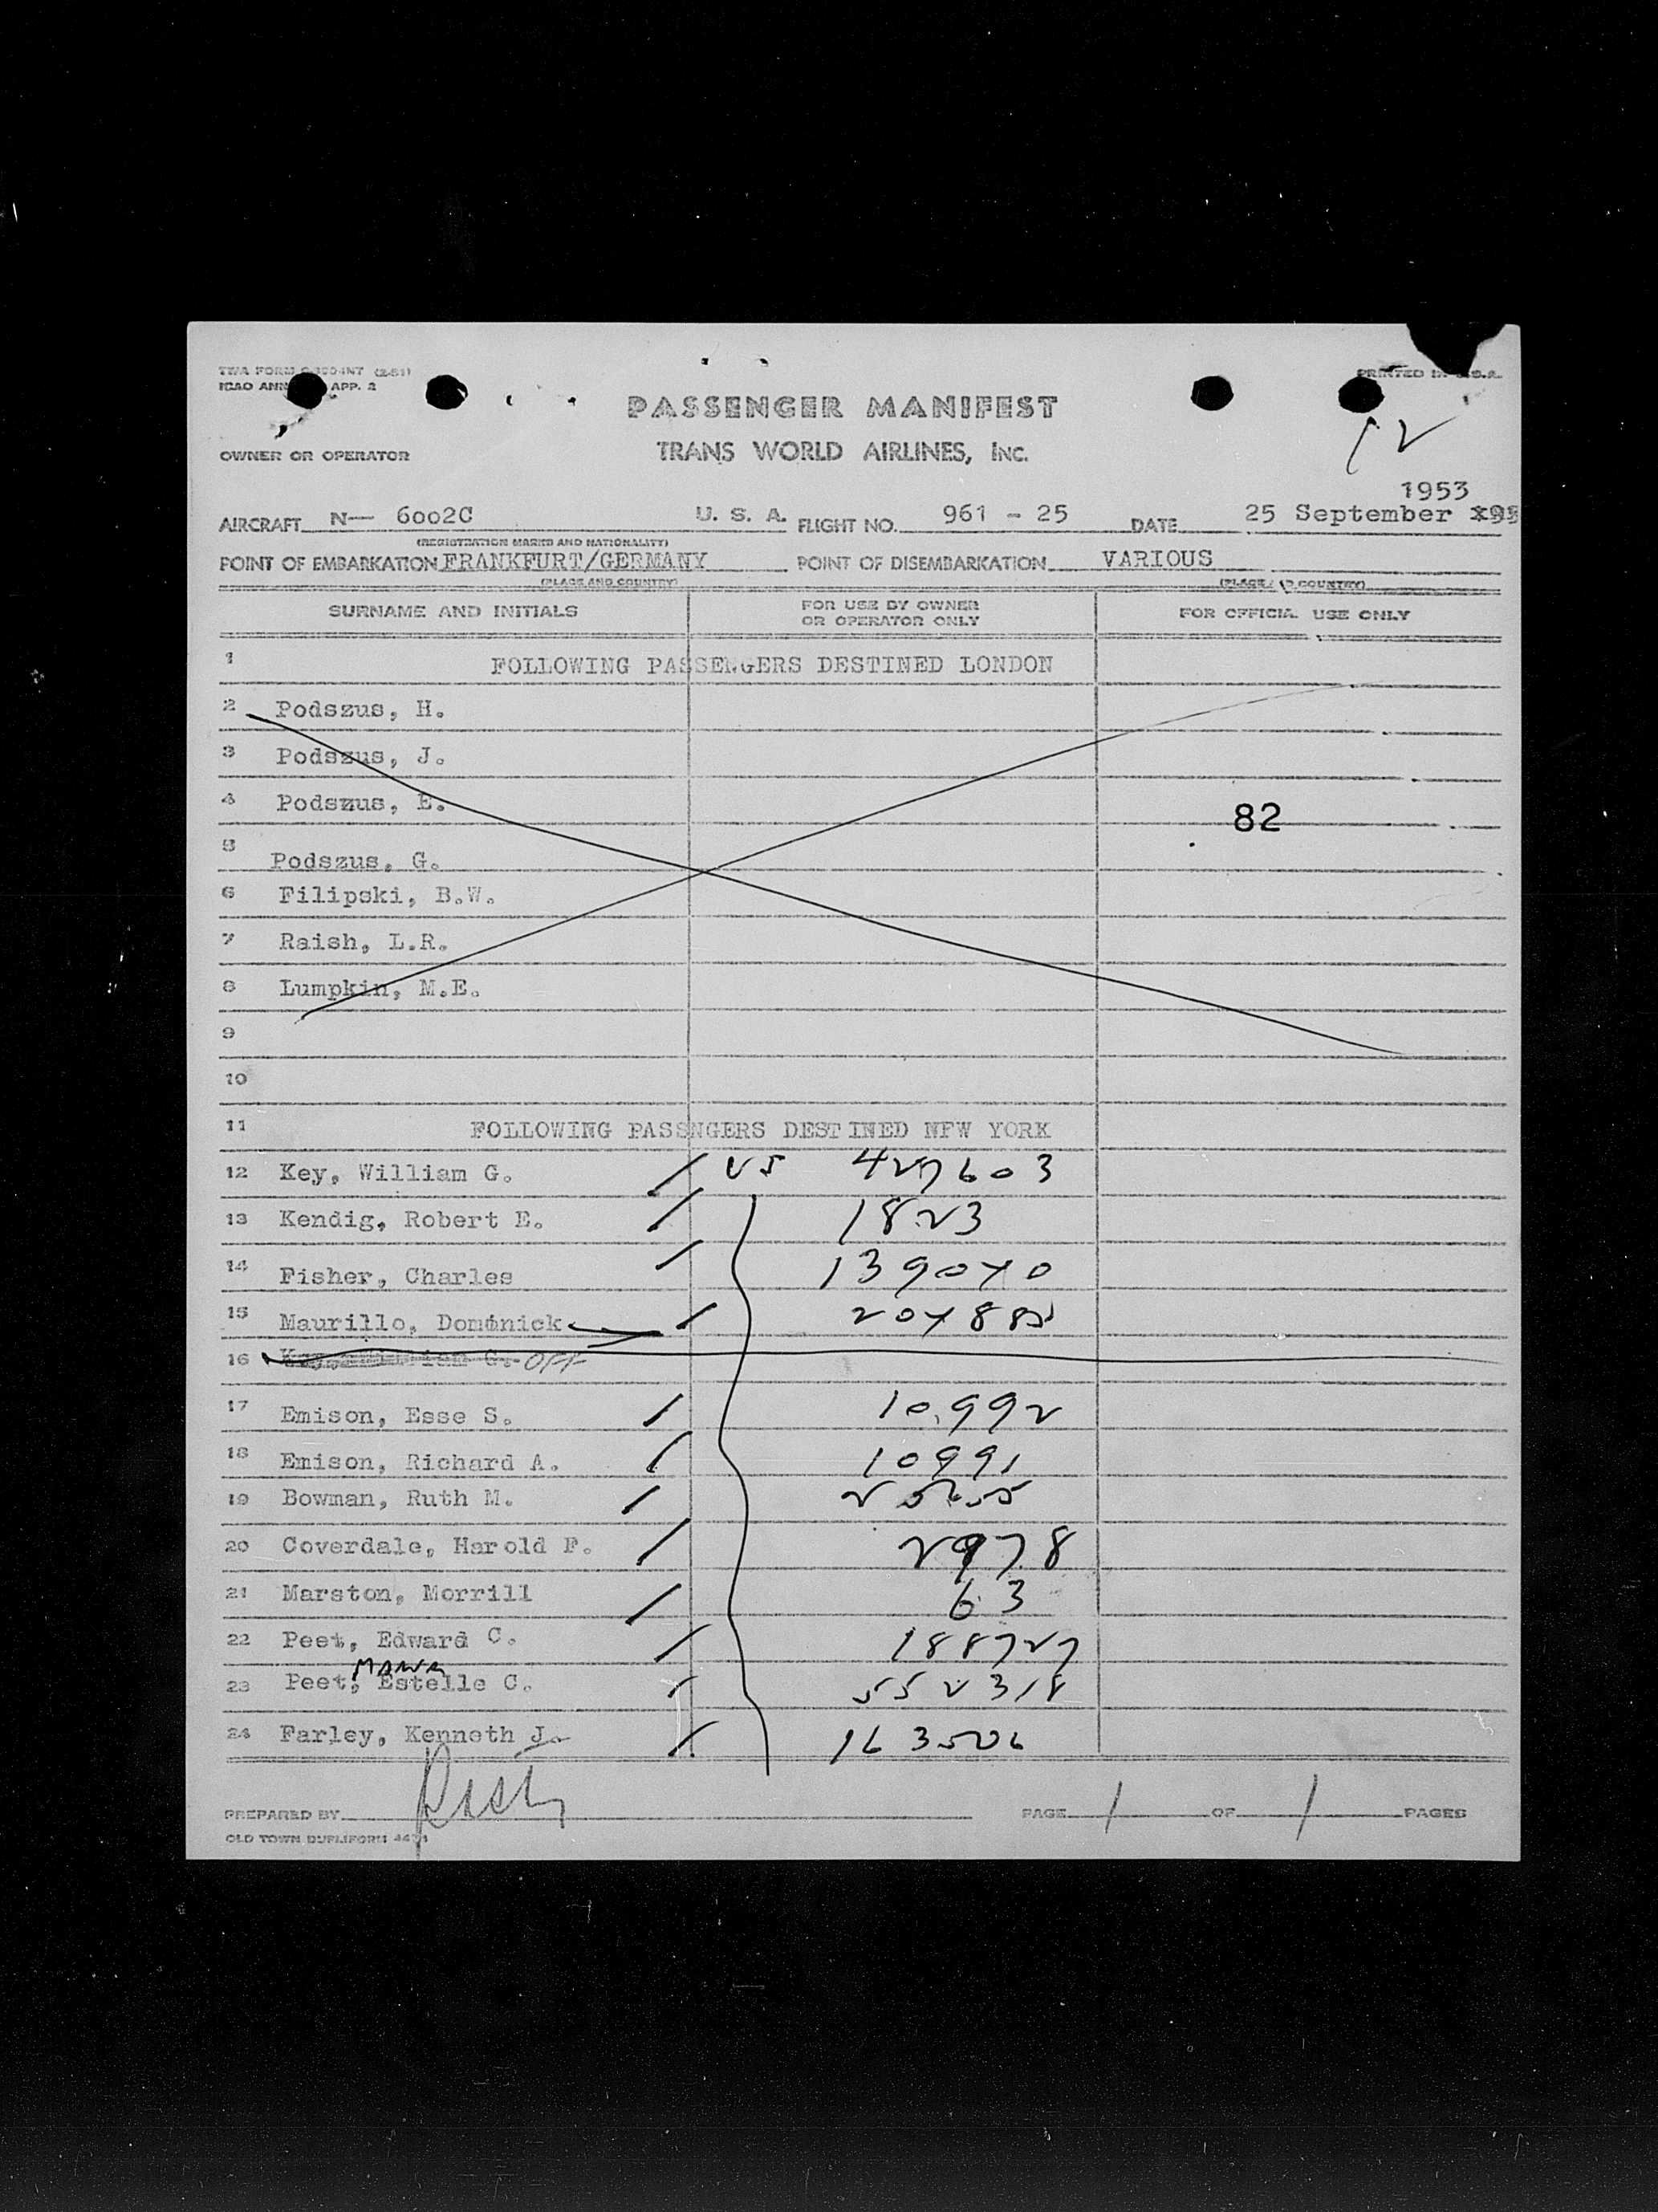 TWA FORM (2-51)
ICAO ANN APP. 2
PRINTED IN U.S.A.
PASSENGER MANIFEST
12
OWNER OR OPERATOR
TRANS WORLD AIRLINES, INC.
1953
AIRCRAFT N— 6002C U. S. A. FLIGHT NO. 961 - 25 DATE 25 September
(REGISTRATION MARKS AND NATIONALITY)
POINT OF EMBARKATION FRANKFURT/GERMANY POINT OF DISEMBARKATION VARIOUS
(PLACE AND COUNTRY) (PLACE AND COUNTRY)
SURNAME AND INITIALS FOR USE BY OWNER OR OPERATOR ONLY FOR OFFICIAL USE ONLY
1 FOLLOWING PASSENGERS DESTINED LONDON
2 Podszus, H.
3 Podszus, J.
4 Podszus, E.
82
5 Podszus, G.
6 Filipski, B.W.
7 Raish, L.R.
8 Lumpkin, M.E.
9
10
11 FOLLOWING PASSNGERS DESTINED NFW YORK
12 Key, William G. / US 427603
13 Kendig, Robert E. / 1823
14 Fisher, Charles / 139040
15 Maurillo, Dominick / 
16 Key, William G. OFF
17 Emison, Esse S. / 10992
18 Emison, Richard A. / 10991
19 Bowman, Ruth M. /
20 Coverdale, Harold F. / 2978
21 Marston, Morrill / 63
22 Peet, Edward C. / 188727
23 Peet, Estelle C. / 552318
24 Farley, Kenneth J. / 163506
PREPARED BY PAGE 1 OF 1 PAGES
OLD TOWN DUPLIFORM